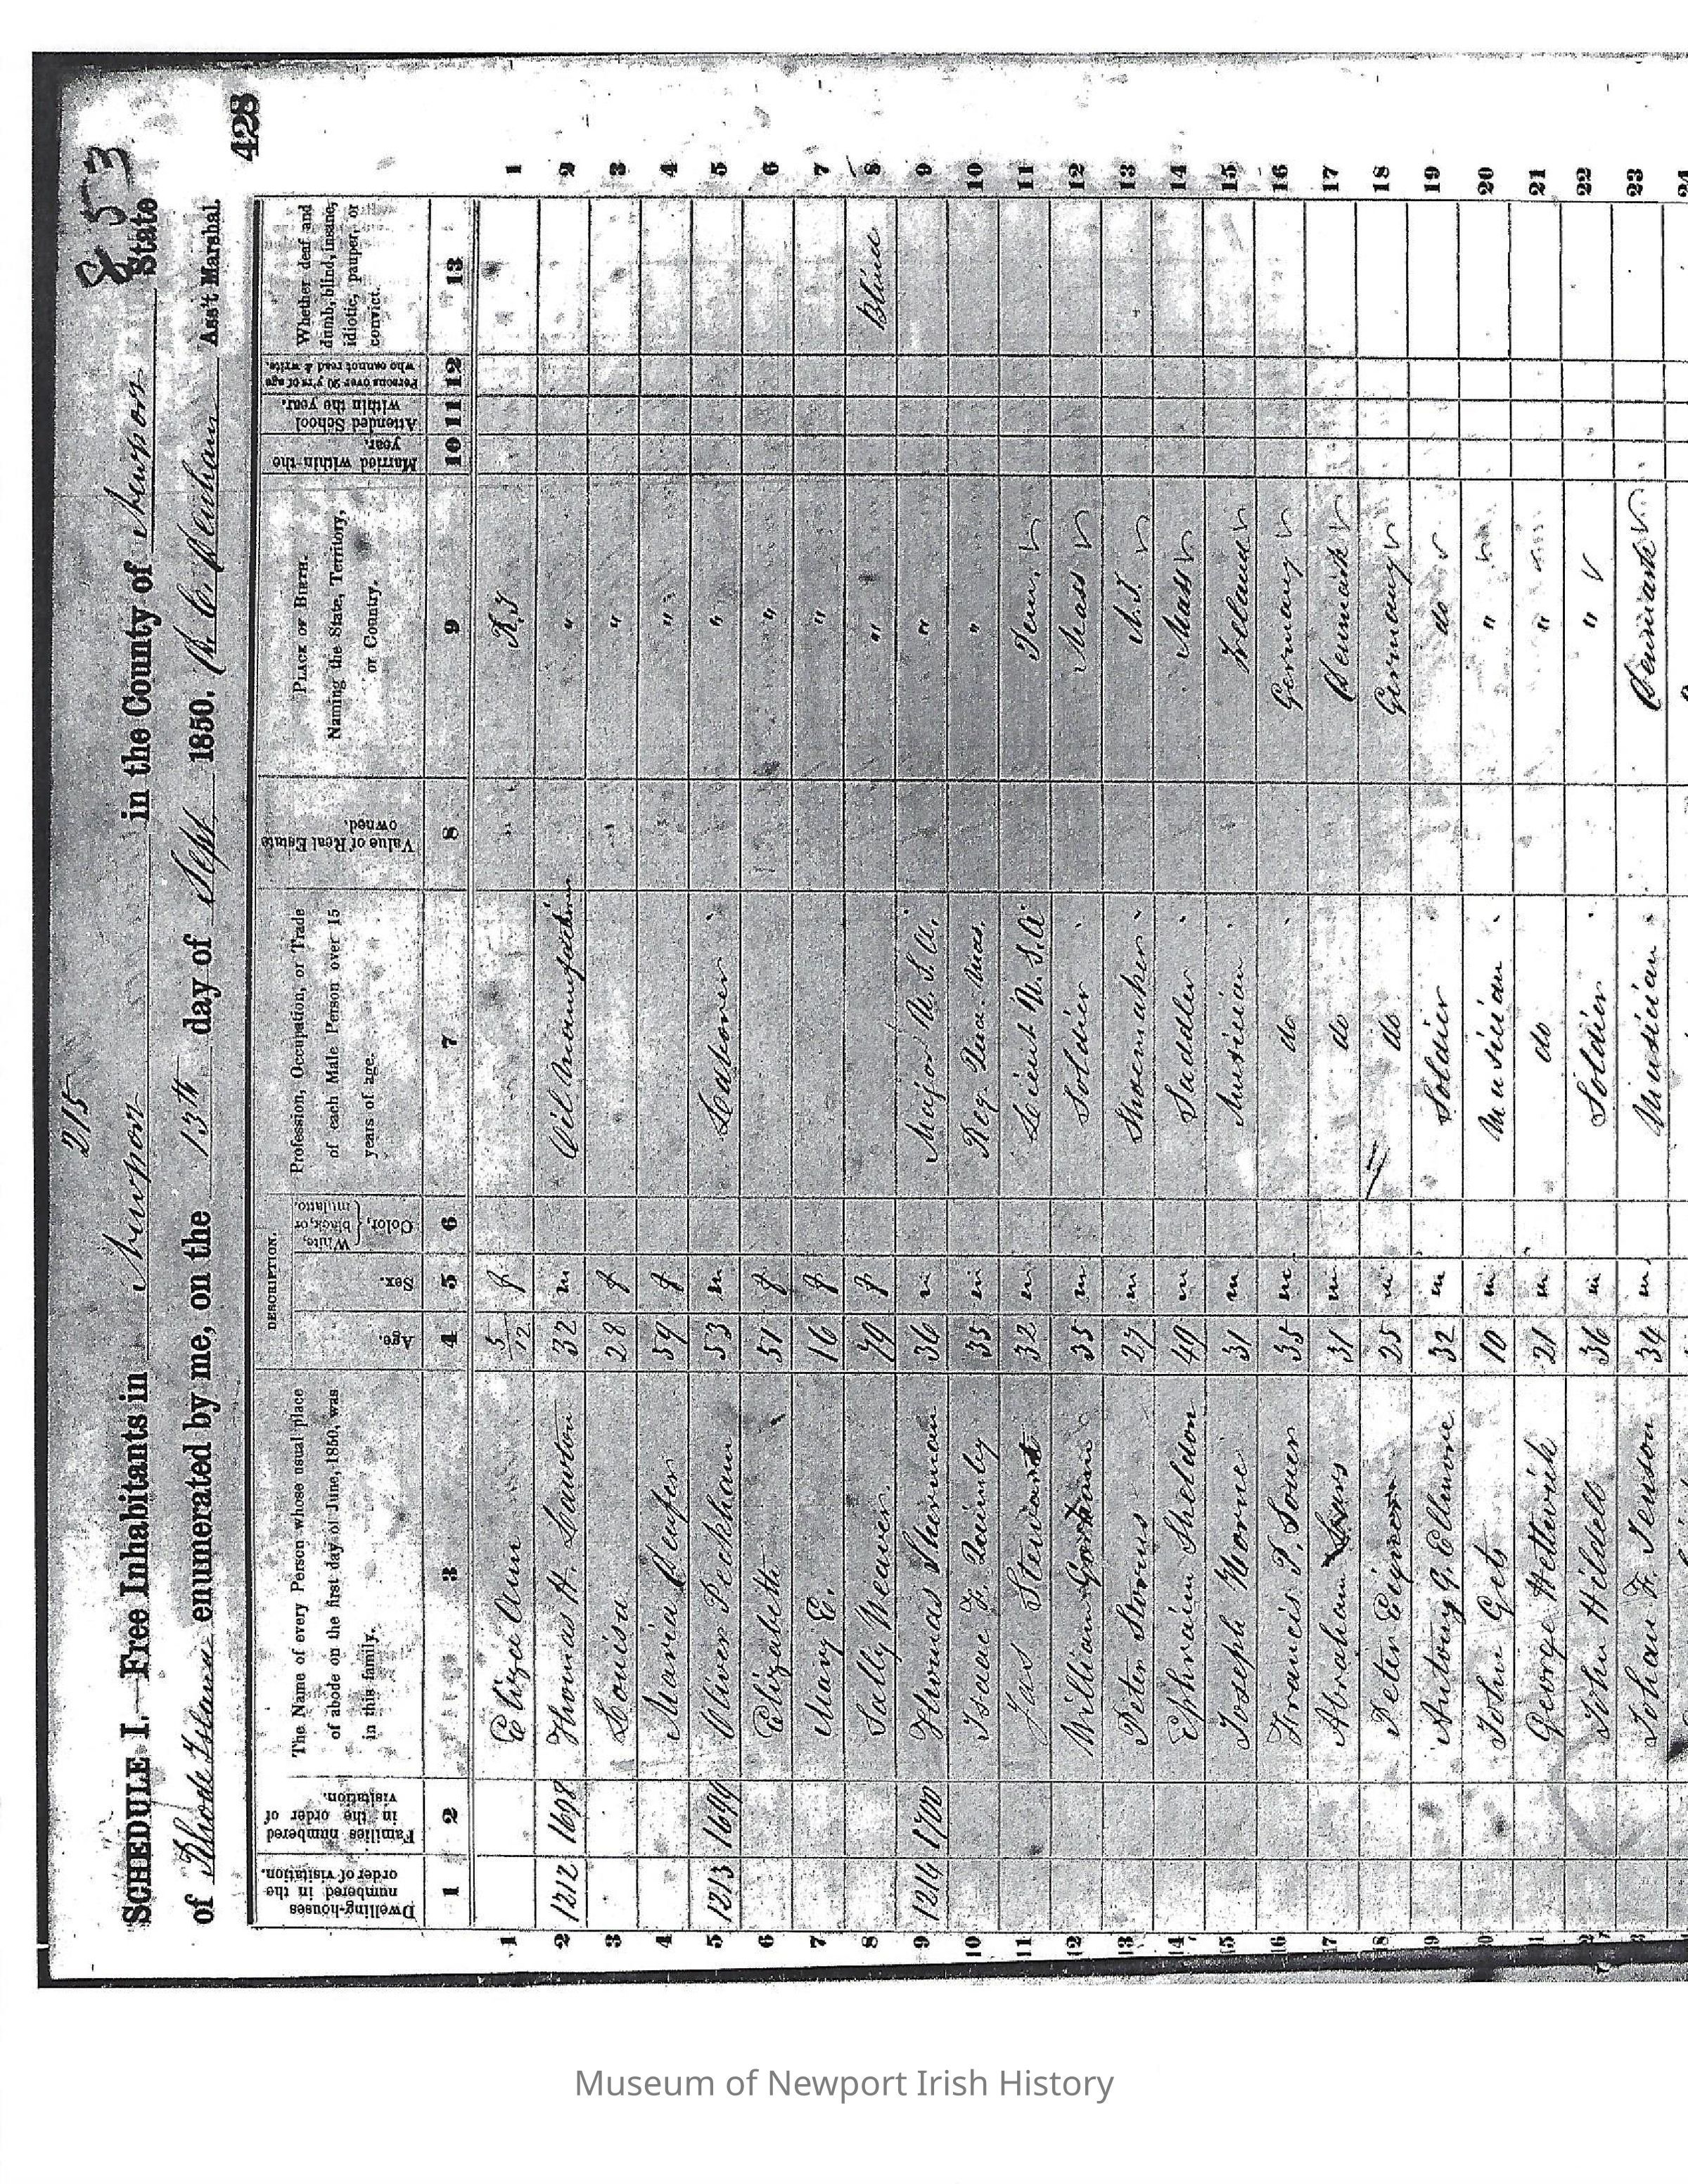 215
853
SCHEDULE I.—Free Inhabitants in Newport in the County of Newport State
of Rhode Island enumerated by me, on the 13th day of Sept 1850. Ass't Marshal.
428
DESCRIPTION.
Dwelling-houses numbered in the order of visitation.
Families numbered in the order of visitation.
The Name of every Person whose usual place of abode on the first day of June, 1850, was in this family.
Age.
Sex.
White, black, or mulatto. Color,
Profession, Occupation, or Trade of each Male Person over 15 years of age.
Value of Real Estate owned.
PLACE OF BIRTH. Naming the State, Territory, or Country.
Married within the year.
Attended School within the year.
Persons over 20 y'rs of age who cannot read & write.
Whether deaf and dumb, blind, insane, idiotic, pauper, or convict.
1 2 3 4 5 6 7 8 9 10 11 12 13
1 Eliza Ann 5/12 f R.I 1
2 1212 1698 Thomas H. Lawton 32 m Oil Manufacturer " 2
3 Louisa 28 f " 3
4 Maria 59 f " 4
5 1213 1699 Oliver Peckham 53 m " 5
6 Elizabeth 51 f " 6
7 Mary E. 16 f " 7
8 Sally Weaver 79 f " Blind 8
9 1214 1700 Thomas Sherman 36 m Major U.S.A. " 9
10 Isaac F. Quimby 35 m " 10
11 Jas Stewart 32 m Lieut U.S.A 11
12 William Gorham 35 m Soldier Mass 12
13 Peter Storms 27 m Shoemaker 13
14 Ephraim Sheldon 49 m Saddler Mass 14
15 Joseph Horne 31 m Musician Ireland 15
16 Francis P. Souer 35 m do Germany 16
17 Abraham 31 m do Denmark 17
18 Peter 25 m do Germany 18
19 Antony G. Ellmore 32 m Soldier do 19
20 John Gets 10 m Musician " 20
21 George Hettwich 21 m do " 21
22 John Hildell 36 m Soldier " 22
23 Johan F. Jenson 34 m Musician Denmark 23
24
Museum of Newport Irish History